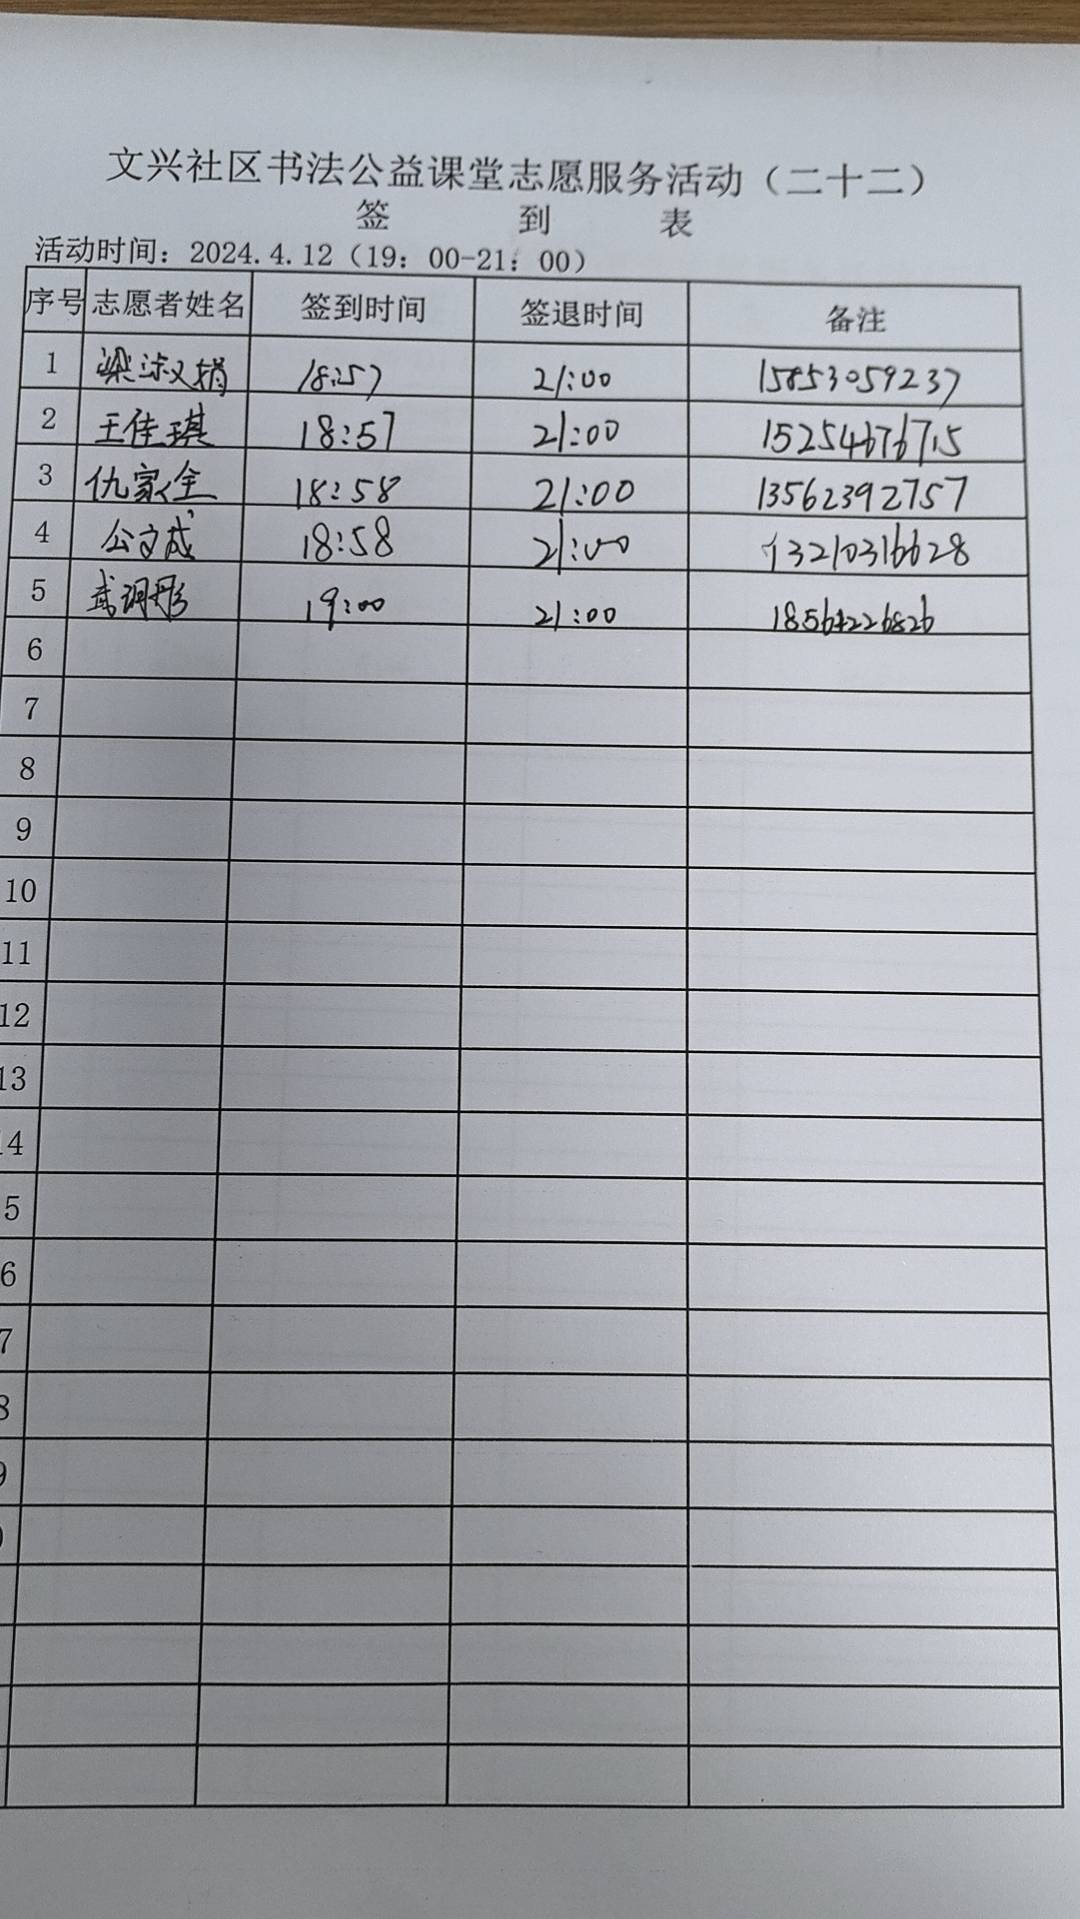 文兴社区书法公益课堂志愿服务活动（二十二）
签 到 表
活动时间：2024.4.12（19：00-21：00）
序号 志愿者姓名 签到时间 签退时间 备注
1 梁淑娟 18:57 21:00 15853059237
2 王佳琪 18:57 21:00
3 仇家全 18:58 21:00 13562392757
4 公文成 18:58 21:00 13210316628
5 武调彤 19:00 21:00
6
7
8
9
10
11
12
13
4
5
6
7
8
9